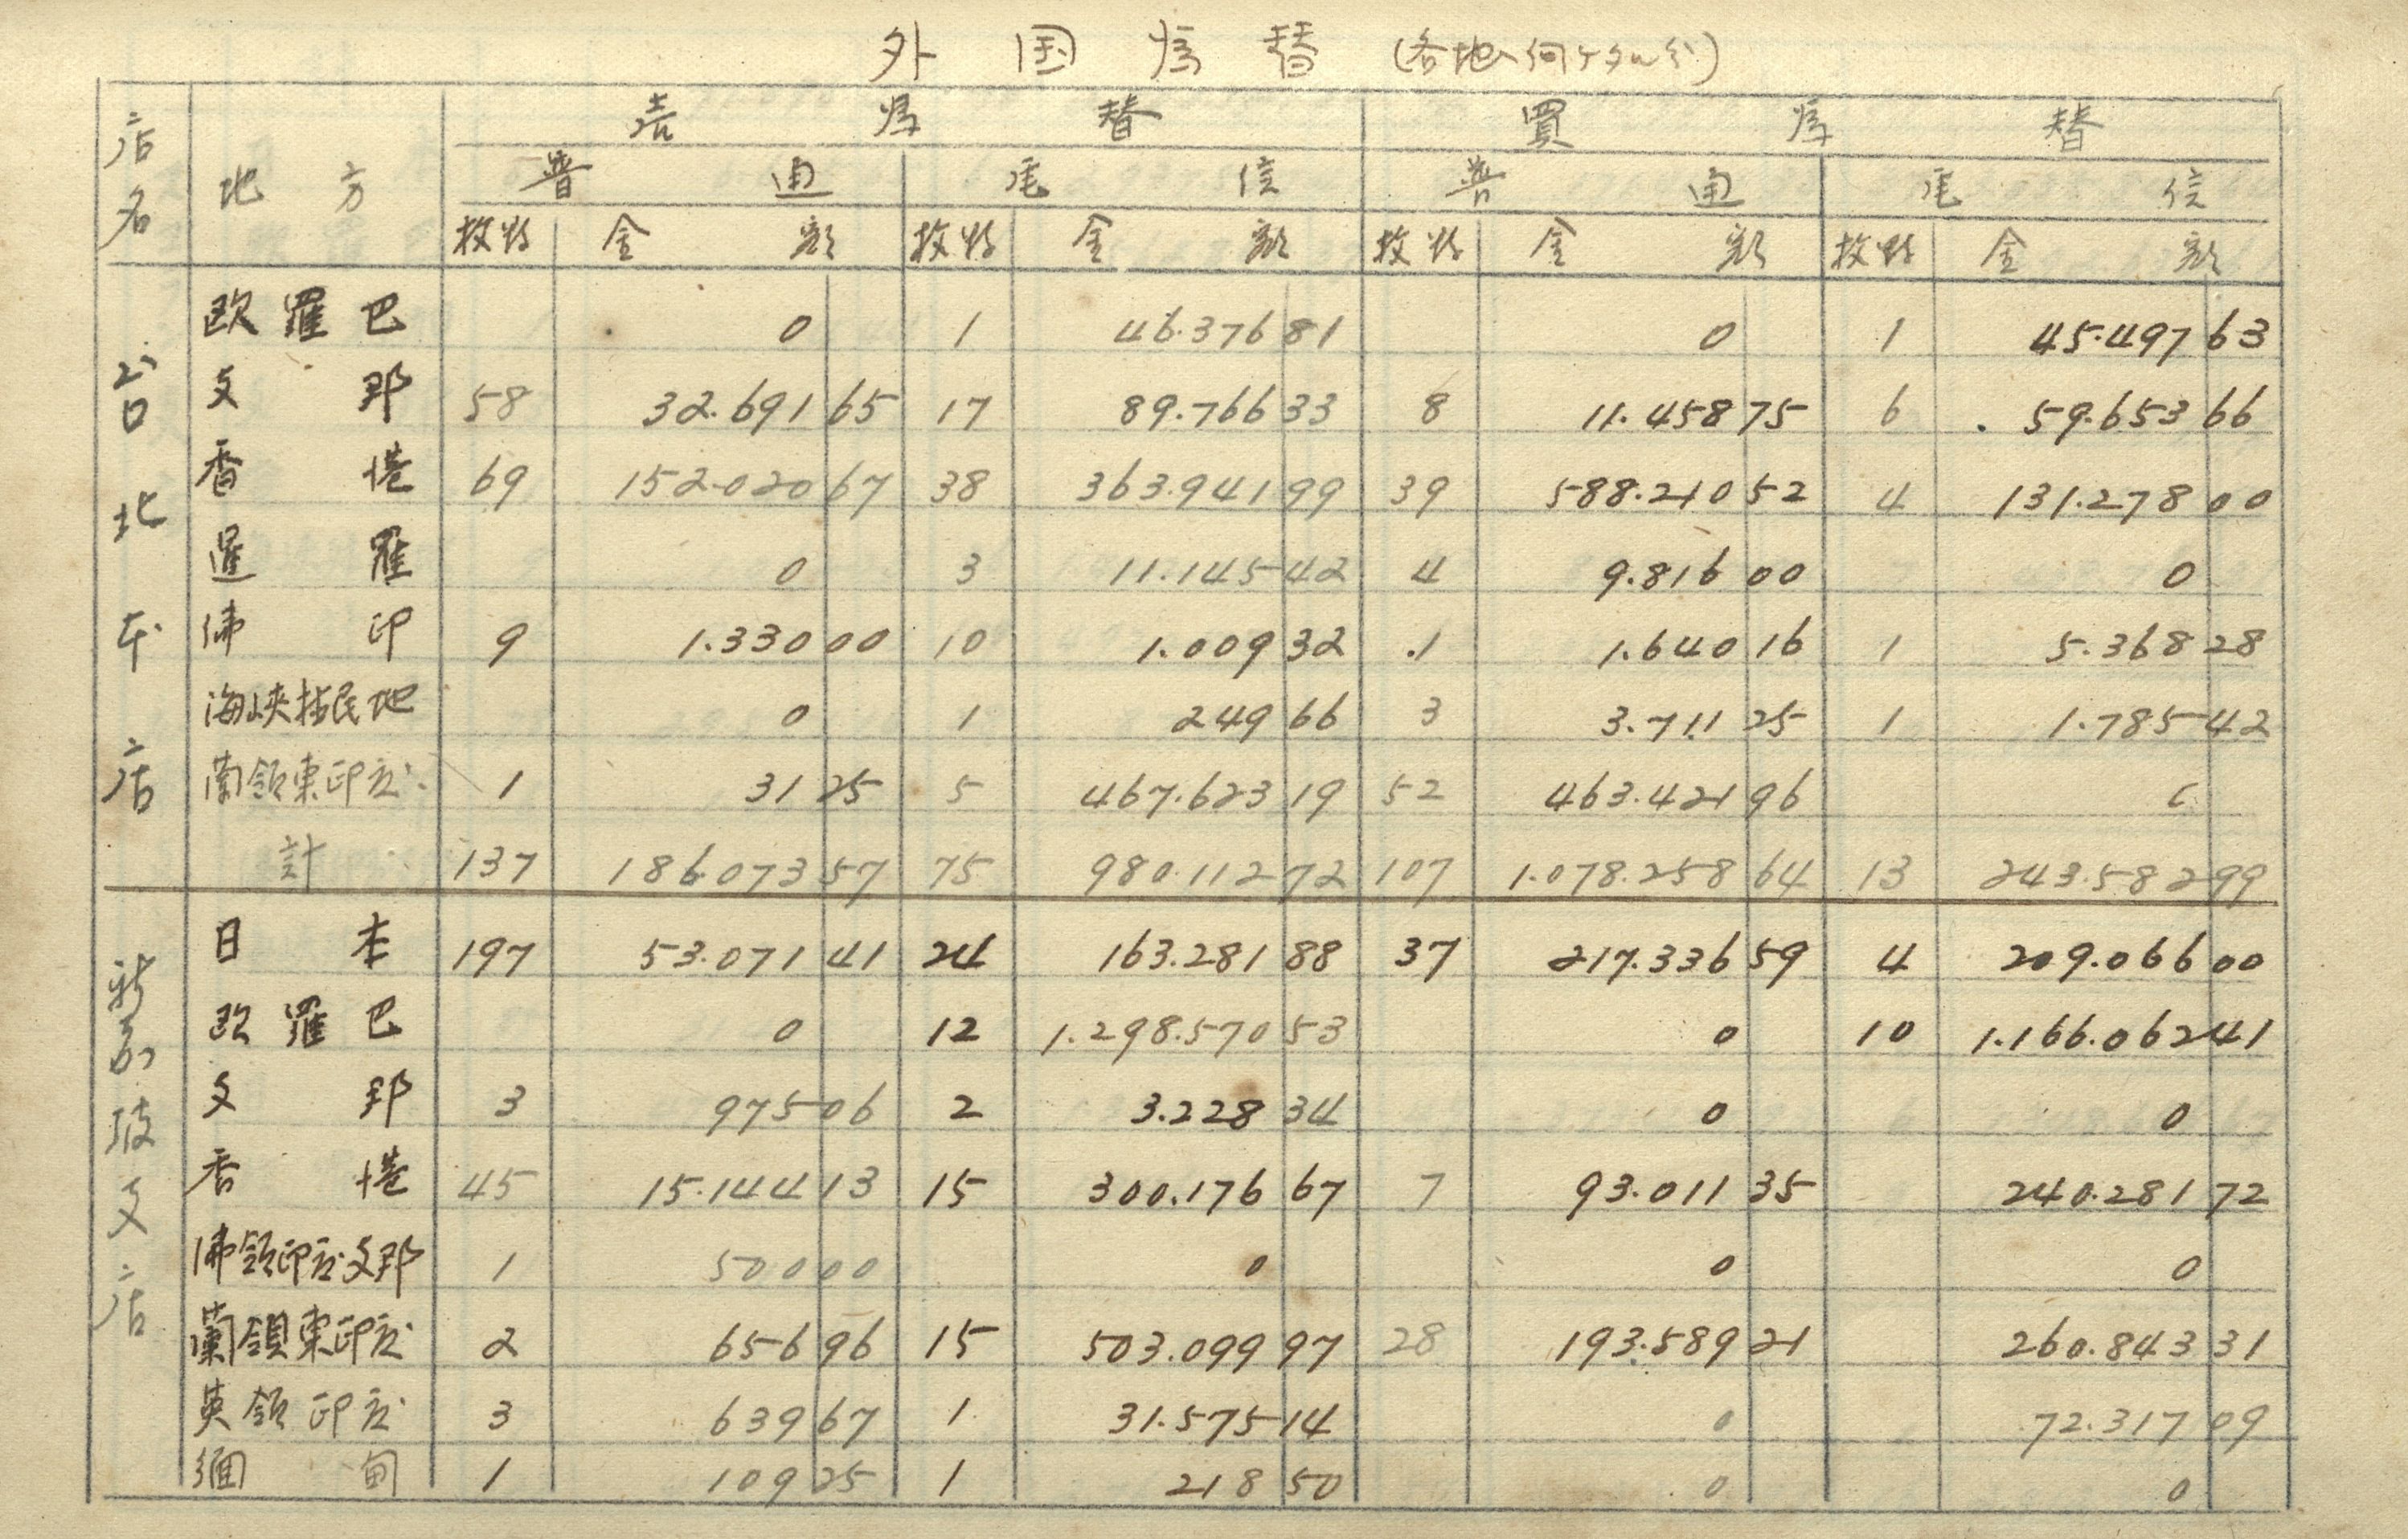 外国為替 (各地へ向ケタル分)
店名 地方 売為替 買為替
普通 電信 普通 電信
枚数 金額 枚数 金額 枚数 金額 枚数 金額
台北本店
欧羅巴 0 1 46.376 81 0 1 45.497 63
支那 58 32.691 65 17 89.766 33 8 11.458 75 6 59.653 66
香港 69 152.020 67 38 363.941 99 39 588.210 52 4 131.278 00
暹羅 0 3 11.145 42 4 9.816 00 0
佛印 9 1.330 00 10 1.009 32 1 1.640 16 1 5.368 28
海峡植民地 0 1 249 66 3 3.711 25 1 1.785 42
蘭領東印度 1 31 25 5 467.623 19 52 463.421 96 0
計 137 186.073 57 75 980.112 72 107 1.078.258 64 13 243.582 99
新嘉坡支店
日本 197 53.071 41 24 163.281 88 37 217.336 59 4 209.066 00
欧羅巴 0 12 1.298.570 53 0 10 1.166.062 41
支那 3 975 06 2 3.228 34 0 0
香港 45 15.144 13 15 300.176 67 7 93.011 35 240.281 72
佛領印度支那 1 500 00 0 0 0
蘭領東印度 2 656 96 15 503.099 97 28 193.589 21 260.843 31
英領印度 3 639 67 1 31.575 14 0 72.317 09
緬甸 1 109 25 1 218 50 0 0